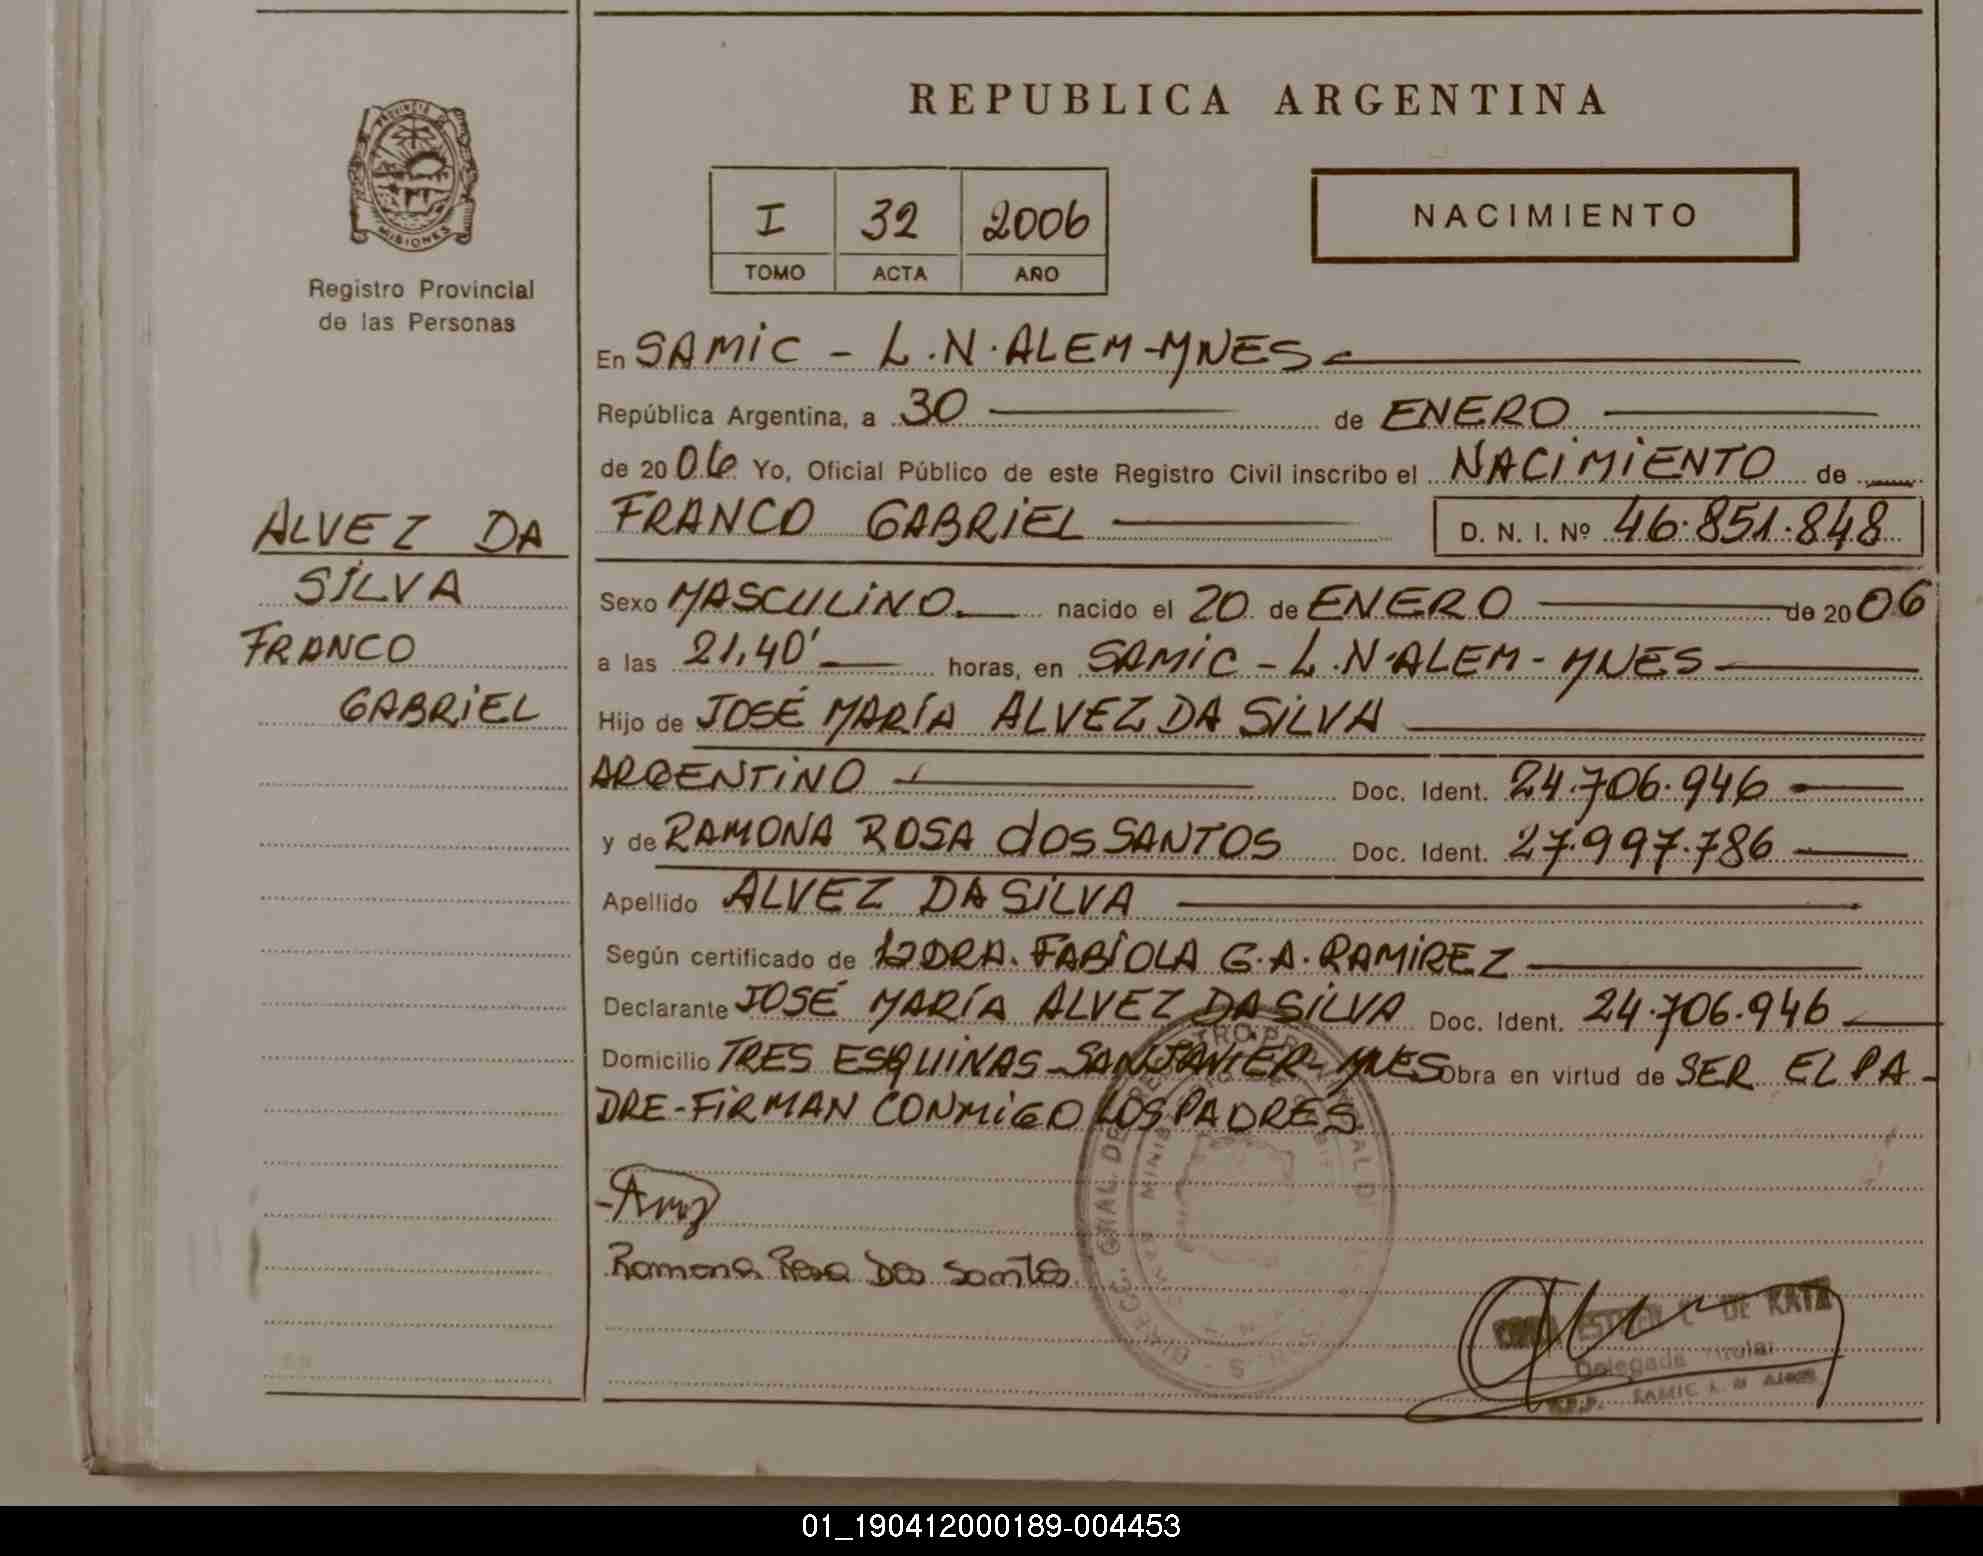 PROVINCIA DE
MISIONES
Registro Provincial
de las Personas
REPUBLICA ARGENTINA
I 32 2006
TOMO ACTA AÑO
NACIMIENTO
En SAMIC - L.N.ALEM-MNES
República Argentina, a 30 de ENERO
de 2006 Yo, Oficial Público de este Registro Civil inscribo el NACIMIENTO de
FRANCO GABRIEL D. N. I. Nº 46.851.848
ALVEZ DA
SILVA
FRANCO
GABRIEL
Sexo MASCULINO nacido el 20 de ENERO de 2006
a las 21,40' horas, en SAMIC - L.N.ALEM - MNES
Hijo de JOSÉ MARÍA ALVEZ DA SILVA
ARGENTINO Doc. Ident. 24.706.946
y de RAMONA ROSA dOS SANTOS Doc. Ident. 27.997.786
Apellido ALVEZ DA SILVA
Según certificado de la DRA. FABÍOLA G.A. RAMIREZ
Declarante JOSÉ MARÍA ALVEZ DA SILVA Doc. Ident. 24.706.946
Domicilio TRES ESQUINAS-SAN JAVIER-MNES Obra en virtud de SER EL PA-
DRE-FIRMAN CONMIGO LOS PADRES
Ramona Rosa Dos Santos
ESTHER C. DE KATZ
Delegada Titular
SAMIC L. N ALEM
01_190412000189-004453